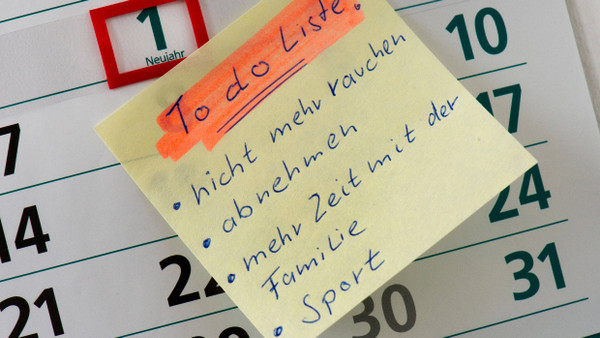 1
Neujahr
To do Liste!
• nicht mehr rauchen
• abnehmen
• mehr Zeit mit der
Familie
• Sport
10
7
17
14
22
24
21
30
31